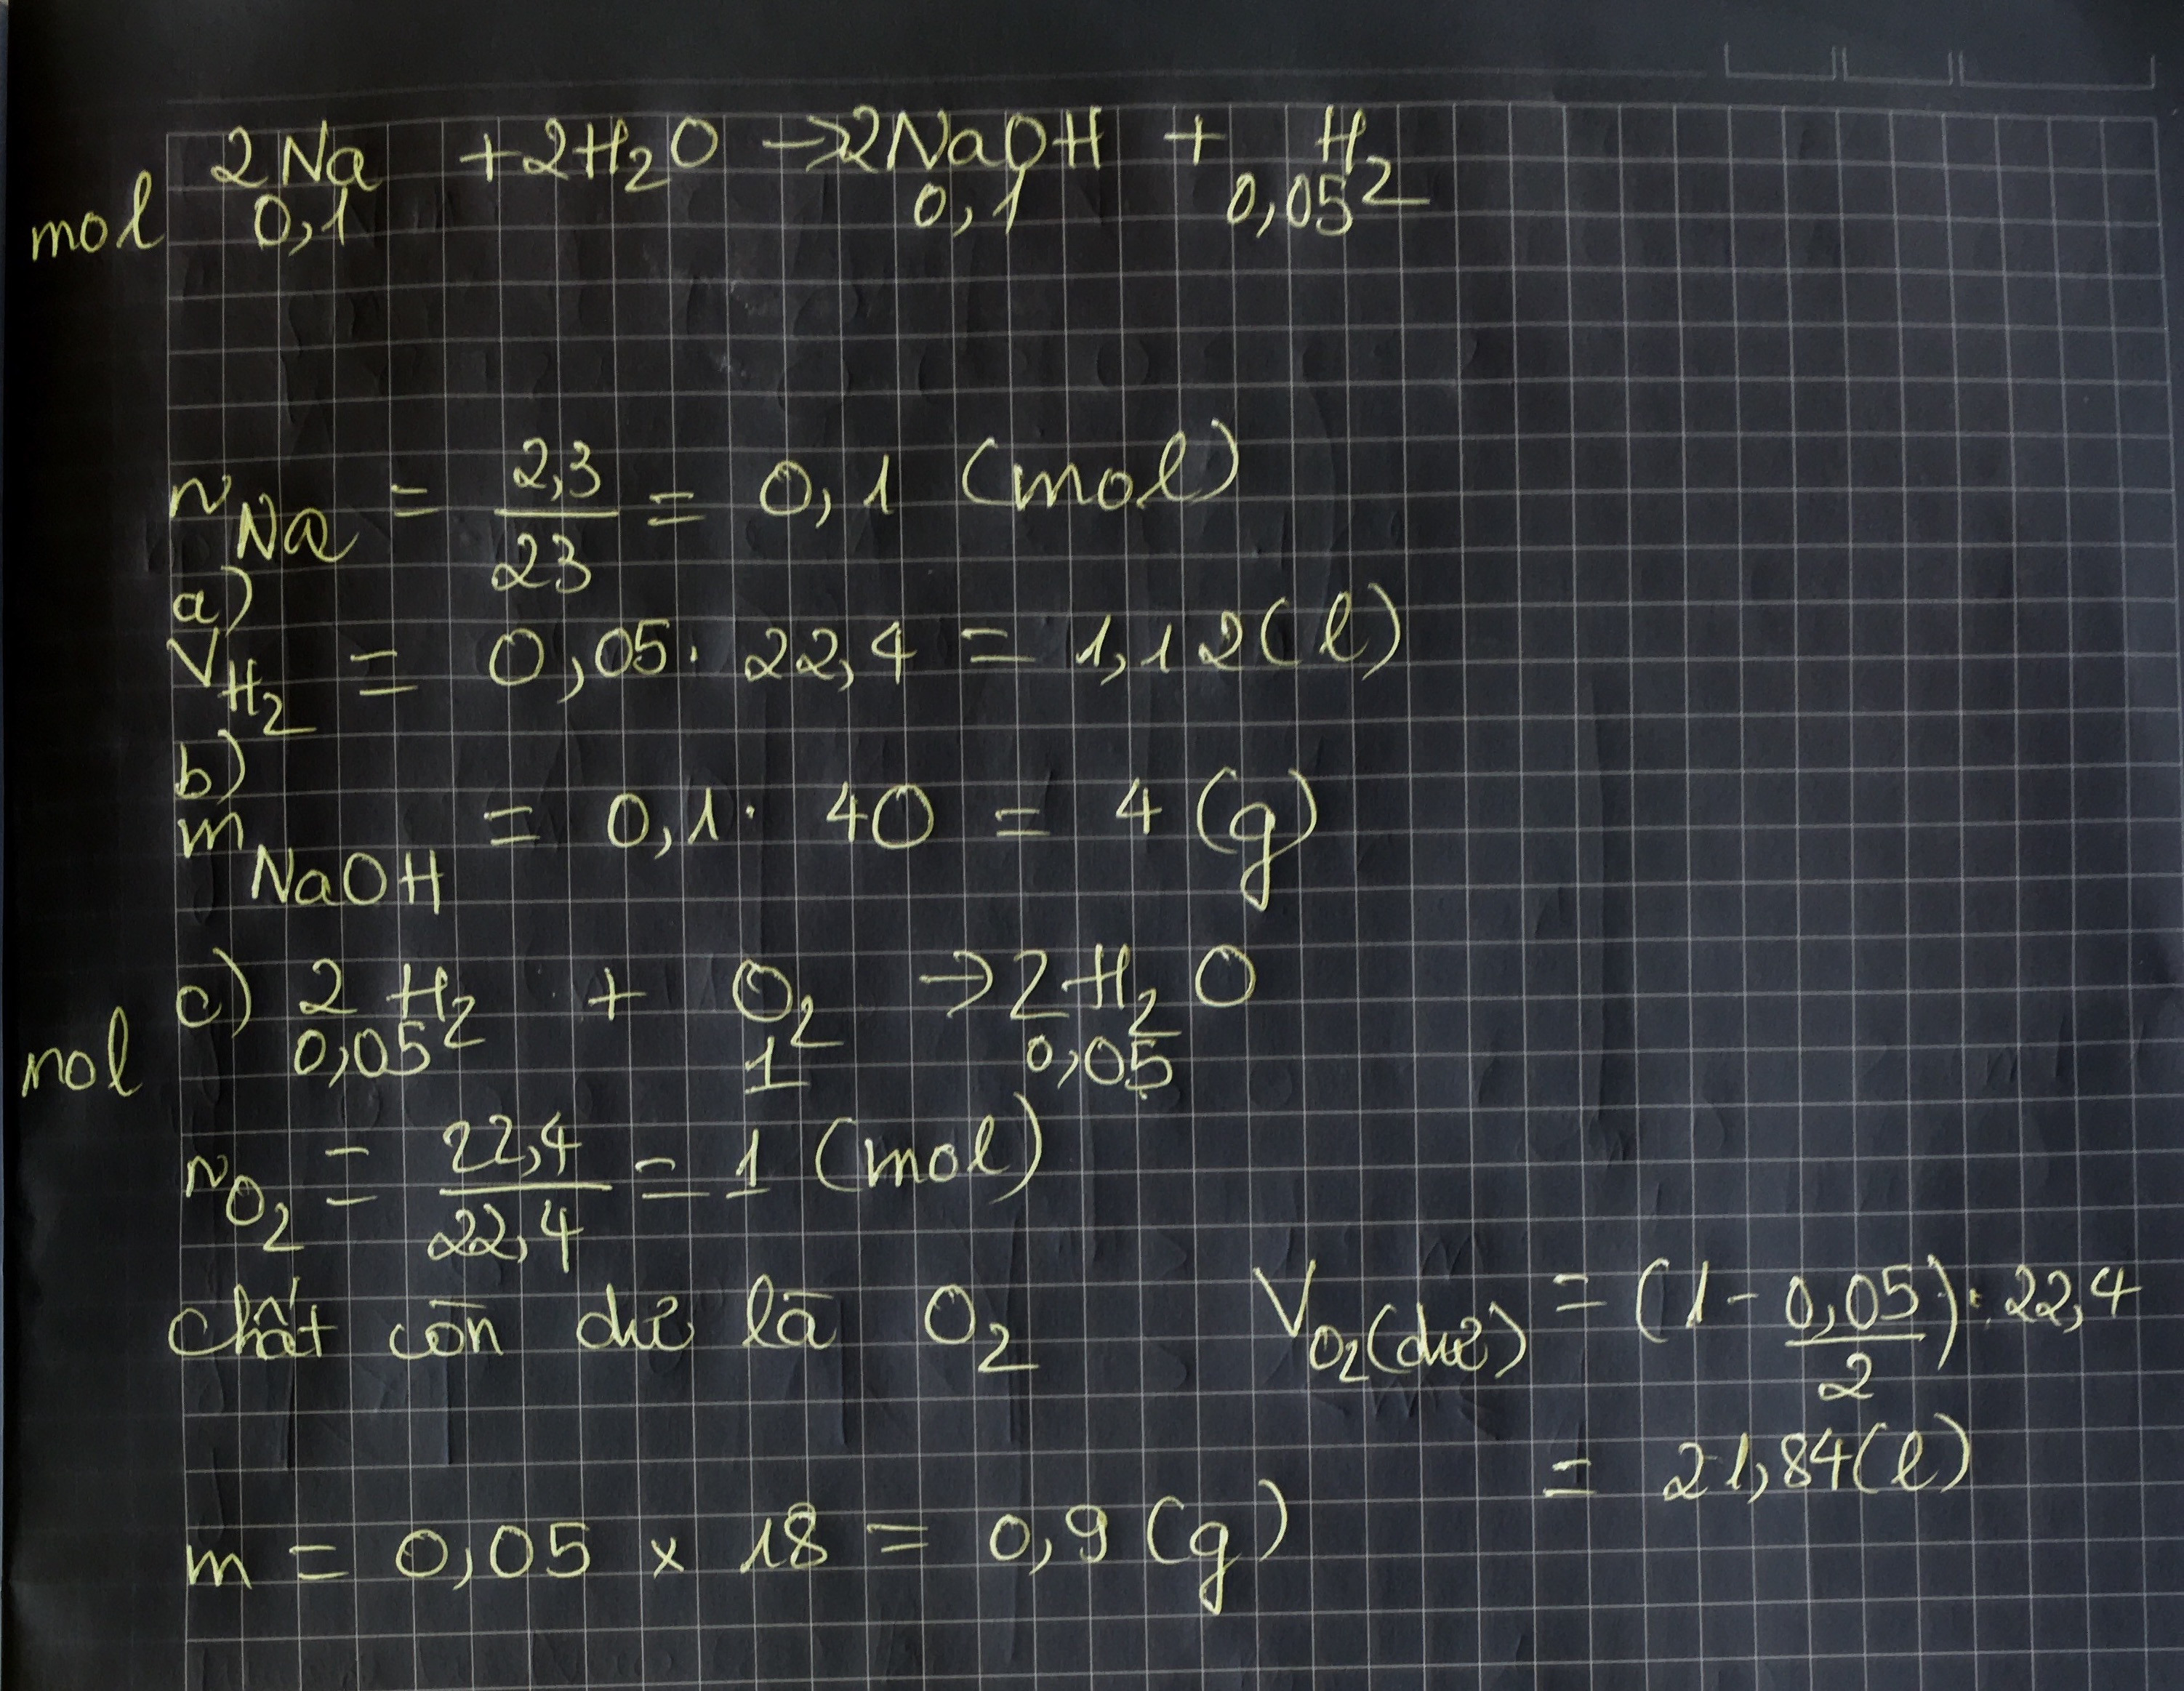 2Na + 2H₂O → 2NaOH + H₂
mol 0,1 0,1 0,05
n_Na = 2,3/23 = 0,1 (mol)
a)
V_H₂ = 0,05 . 22,4 = 1,12 (l)
b)
m_NaOH = 0,1 . 40 = 4 (g)
c) 2H₂ + O₂ → 2H₂O
mol 0,05 1 0,05
n_O₂ = 22,4/22,4 = 1 (mol)
chất còn dư là O₂
V_O₂(dư) = (1 - 0,05/2) . 22,4
= 21,84 (l)
m = 0,05 x 18 = 0,9 (g)